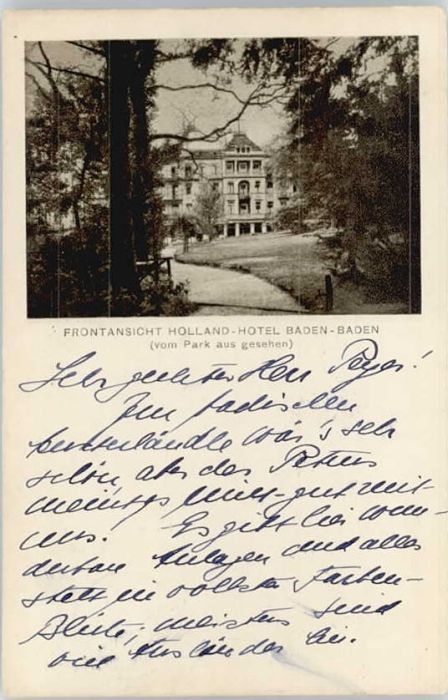 FRONTANSICHT HOLLAND-HOTEL BADEN-BADEN
(vom Park aus gesehen)
Sehr geehrter Herr
Im badischen
wär's sehr
schön, aber der Petrus
meints nicht gut mit
uns. Es gibt hier wun-
derbare Anlagen und alles
steht in vollster Farben-
Blüte, meistens sind
viel Ausländer hier.